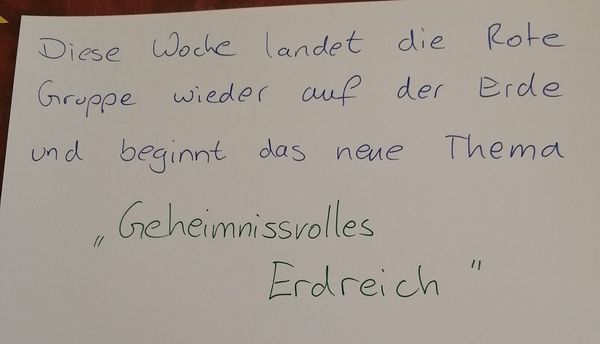 Diese Woche landet die Rote
Gruppe wieder auf der Erde
und beginnt das neue Thema
„Geheimnissvolles
Erdreich"